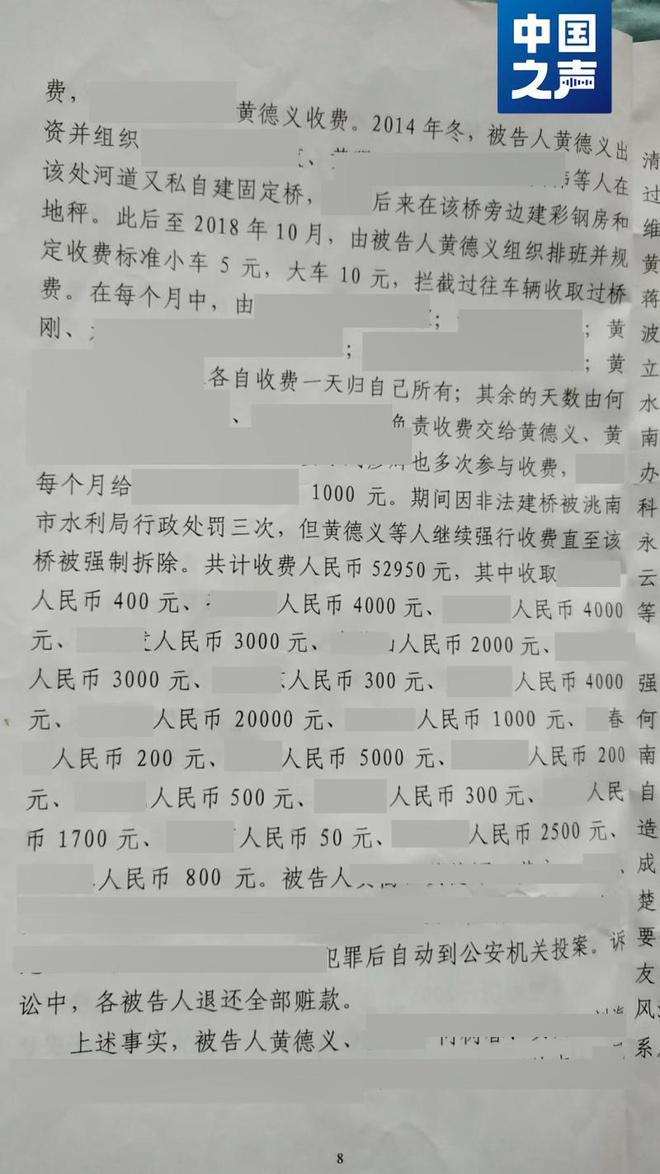 中国
之声
费，
黄德义收费。2014年冬，被告人黄德义出
资并组织
该处河道又私自建固定桥，
等人在
地秤。此后至2018年10月，由被告人黄德义组织排班并规
后来在该桥旁边建彩钢房和
定收费标准小车5元，大车10元，拦截过往车辆收取过桥
费。在每个月中，由
刚、
；
；黄
；
；黄
各自收费一天归自己所有；其余的天数由何
、
负责收费交给黄德义、黄
也多次参与收费，
每个月给
1000元。期间因非法建桥被洮南
市水利局行政处罚三次，但黄德义等人继续强行收费直至该
桥被强制拆除。共计收费人民币52950元，其中收取
人民币400元、
人民币4000元、
人民币4000
元、
人民币3000元、
人民币2000元、
人民币3000元、
人民币300元、
人民币4000
元、
人民币20000元、
人民币1000元、
春
人民币200元、
人民币5000元、
人民币200
元、
人民币500元、
人民币300元、
人民
币1700元、
人民币50元、
人民币2500元、
人民币800元。被告人
犯罪后自动到公安机关投案。诉
讼中，各被告人退还全部赃款。
上述事实，被告人黄德义、
8
清
过
维
黄
蒋
波
立
水
南
办
科
永
云
等
强
何
南
自
造
成
楚
要
友
风
系